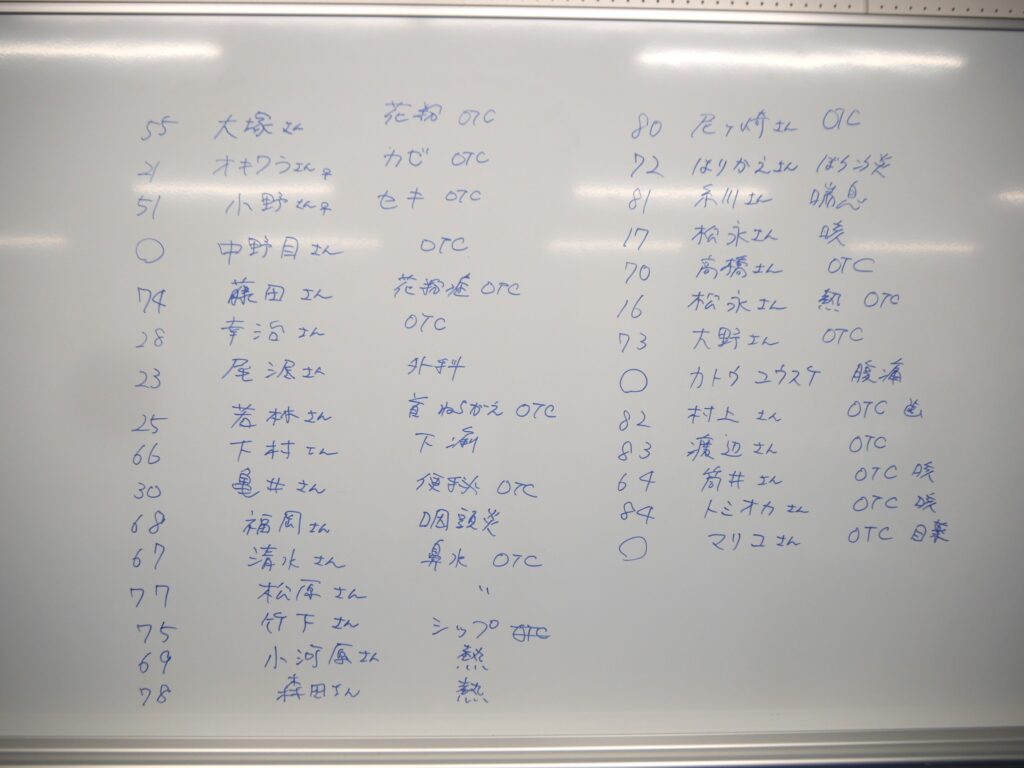 55 大塚さん 花粉 OTC
21 オキワラさん♀ カゼ OTC
51 小野さん♀ セキ OTC
○ 中野目さん OTC
74 藤田さん 花粉症 OTC
28 幸治さん OTC
23 尾泥さん 外科
25 若林さん 首ねちがえ OTC
66 下村さん 下痢
30 亀井さん 便秘 OTC
68 福岡さん 咽頭炎
67 清水さん 鼻水 OTC
77 松原さん 〃
75 竹下さん シップ OTC
69 小河原さん 熱
78 森田さん 熱
80 尼ヶ崎さん OTC
72 はりかえさん ぼうこう炎
81 糸川さん 喘息
17 松永さん 咳
70 高橋さん OTC
16 松永さん 熱 OTC
73 大野さん OTC
○ カトウユウスケ 腹痛
82 村上さん OTC
83 渡辺さん OTC
64 筒井さん OTC 咳
84 トミオカさん OTC 咳
○ マリコさん OTC 目薬